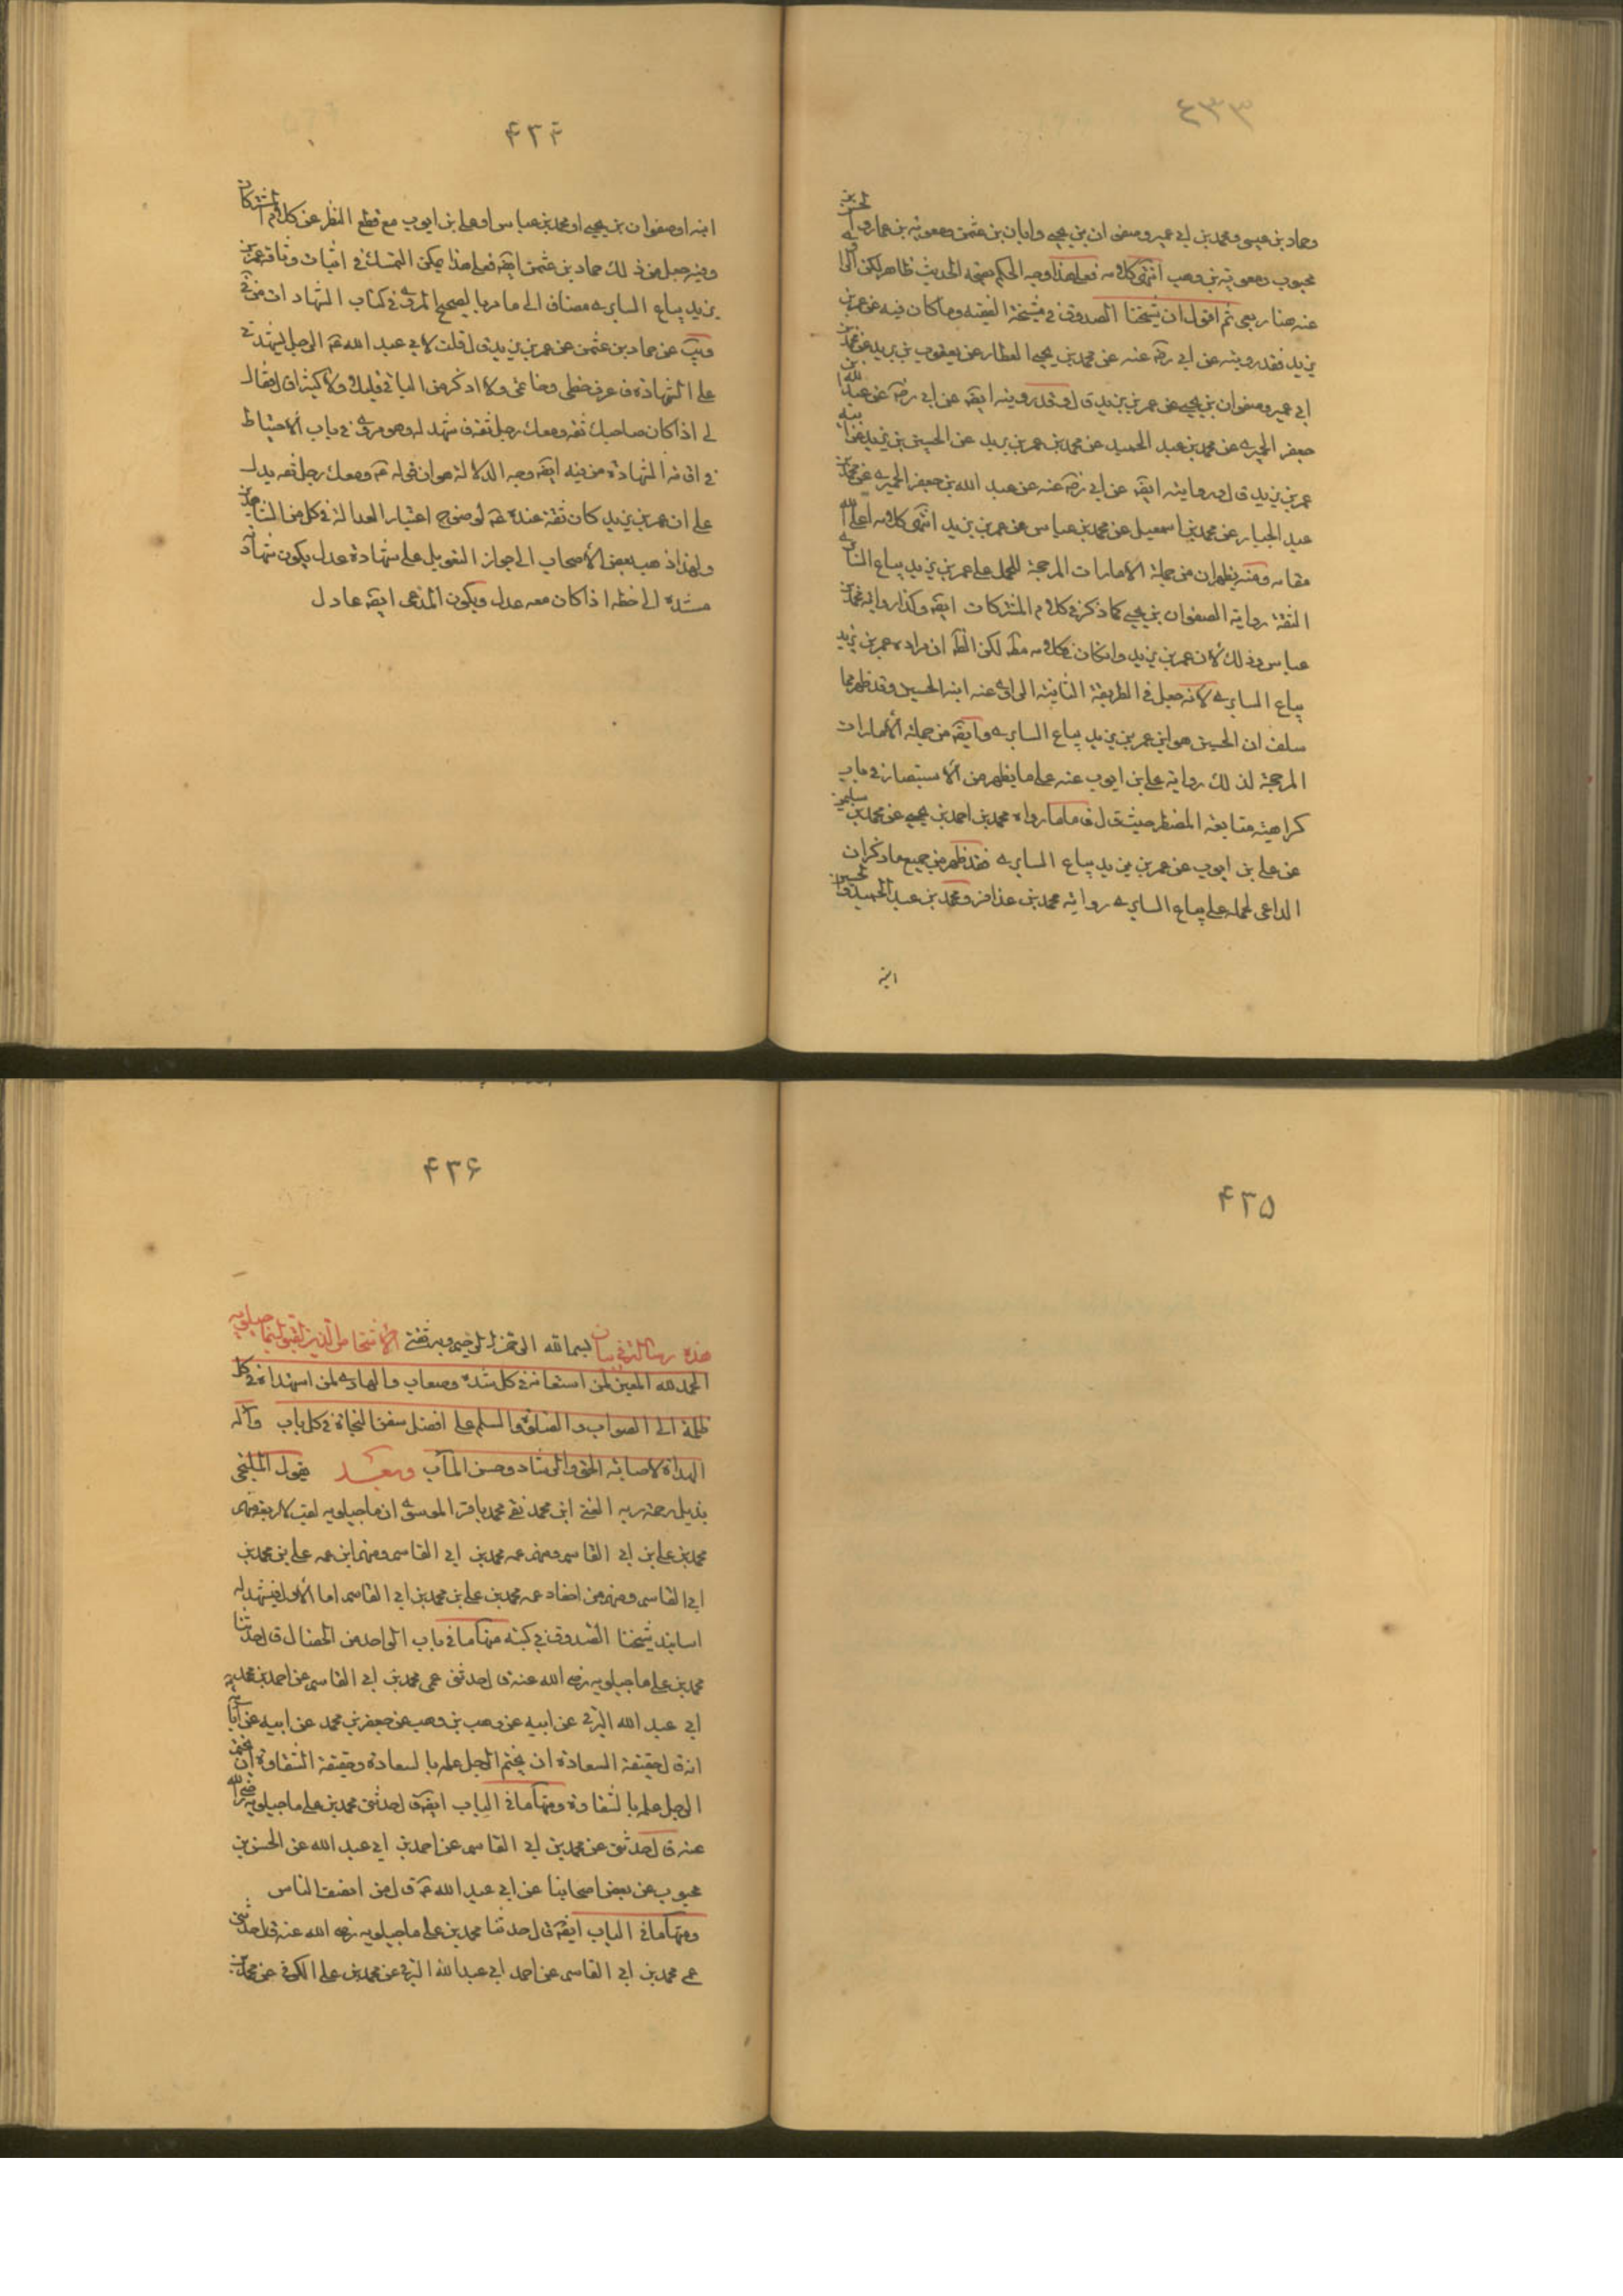 ٤٣٣
وحماد بن عيسى ومحمد بن ابي عمير وصفوان بن يحيى وابان بن عثمن ومعوية بن عمار والحسن بن
محبوب ومعوية بن وهب انتهى كلامه فعلى هذا وجه الحكم بصحة الحديث ظاهر لكن الراوى
عنه هنا ربعى ثم اقول ان شيخنا الصدوق في مشيخة الفقيه وما كان فيه عن عمر بن
يزيد فقد رويته عن ابي رضه عنه عن محمد بن يحيى العطار عن يعقوب بن يزيد عن محمد بن
ابي عمير وصفوان بن يحيى عن عمر بن يزيد قال وقد رويته ايضه عن ابي رضه عن عبد الله بن
جعفر الحميرى عن محمد بن عبد الحميد عن محمد بن عمر بن يزيد عن الحسين بن يزيد عن ابيه
عمر بن يزيد قال ورويته ايضه عن ابي رضه عنه عن عبد الله بن جعفر الحميرى عن محمد بن
عبد الجبار عن محمد بن اسمعيل عن محمد بن عباس عن عمر بن يزيد انتهى كلامه اعلى الله
مقامه ومنه يظهر ان من جملة الامارات المرجحة للحمل على عمر بن يزيد بياع السابرى
الثقة رواية الصفوان بن يحيى كما ذكر في كلام المشتركات ايضه وكذا رواية محمد بن
عباس وذلك لان عمر بن يزيد وان كان في كلامه مطه لكن الظه ان مراده عمر بن يزيد
بياع السابرى لانه جعل في الطريقة الثانية الراوى عنه ابنه الحسين وقد ظهر مما
سلف ان الحسين هو ابن عمر بن يزيد بياع السابرى وايضه من جملة الامارات
المرجحة لذلك رواية على بن ايوب عنه على ما يظهر من الاستبصار في باب
كراهية متابعة المضطر حيث قال فاما ما رواه محمد بن احمد بن يحيى عن محمد بن سليمن
عن على بن ايوب عن عمر بن يزيد بياع السابرى فقد ظهر من جميع ما ذكر ان
الداعى لحمله على بياع السابرى رواية محمد بن عذافر ومحمد بن عبد الحميد والحسين
ابنه
۴۳۴
ابنه او صفوان بن يحيى او محمد بن عباس او على بن ايوب مع قطع النظر عن كلام المشتركات
وفيه جعل من ذلك حماد بن عثمن ايضه فعلى هذا يمكن التمسك في اثبات وثاقة عمر بن
يزيد بياع السابرى مضافا الى ما مر بالصحيح المروى في كتاب الشهادات من في
ويب عن حماد بن عثمن عن عمر بن يزيد قال قلت لابي عبد الله عه الرجل يشهدنى
على الشهادة فاعرف خطى وخاتمى ولا اذكر من الباقى قليلا ولا كثيرا قال فقال
لى اذا كان صاحبك ثقة ومعك رجل ثقة فاشهد له وهو مروى في باب الاحتياط
في اقامة الشهادة من فيه ايضه وجه الدلالة هو ان قوله عه ومعك رجل ثقة يدل
على ان عمر بن يزيد كان ثقة عنده عه لوضوح اعتبار العدالة في كل من الشاهدين
ولهذا ذهب بعض الاصحاب الى جواز التعويل على شهادة عدل يكون شهادة
مستندة الى خطه اذا كان معه عدل ويكون المدعى ايضه عادل
۴۳۵
۴۳۶
هذه رسالة في بيان بسم الله الرحمن الرحيم وبه ثقتى الاشخاص الذين لقبوا بماجيلويه
الحمد لله المعين لمن استعانه في كل شدة وصعاب والهادى لمن استهداه في كل
ظلمة الى الصواب والصلوة والسلم على افضل سفن النجاة في كل باب وآله
الهداة لاصابة الحق والرشاد وحسن المآب وبعد فيقول الملتجى
بذيل رحمة ربه الغنى ابن محمد نقى محمد باقر الموسوى ان ماجيلويه لقب لاربعة منهم
محمد بن على بن ابي القاسم ومنهم عمه محمد بن ابي القاسم ومنهم ابن عمه على بن محمد بن
ابي القاسم ومنهم من احفاد عمه محمد بن على بن محمد بن ابي القاسم اما الاول فيشهد له
اسانيد شيخنا الصدوق في كتبه منها ما في باب الواحد من الخصال قال حدثنا
محمد بن على ماجيلويه رضى الله عنه قال حدثنى عمى محمد بن ابي القاسم عن احمد بن محمد بن
ابي عبد الله البرقى عن ابيه عن وهب بن وهب عن جعفر بن محمد عن ابيه عن آبائه
انه قال حقيقة السعادة ان يختم الرجل عمله بالسعادة وحقيقة الشقاوة ان يختم
الرجل عمله بالشقاوة ومنها ما في الباب ايضه قال حدثنى محمد بن على ماجيلويه رضى الله
عنه قال حدثنى عن محمد بن ابي القاسم عن احمد بن ابي عبد الله عن الحسن بن
محبوب عن بعض اصحابنا عن ابي عبد الله عه قال من انصف الناس
ومنها ما في الباب ايضه قال حدثنا محمد بن على ماجيلويه رضى الله عنه قال حدثنى
عمى محمد بن ابي القاسم عن احمد ابي عبد الله البرقى عن محمد بن على الكوفى عن محمد بن